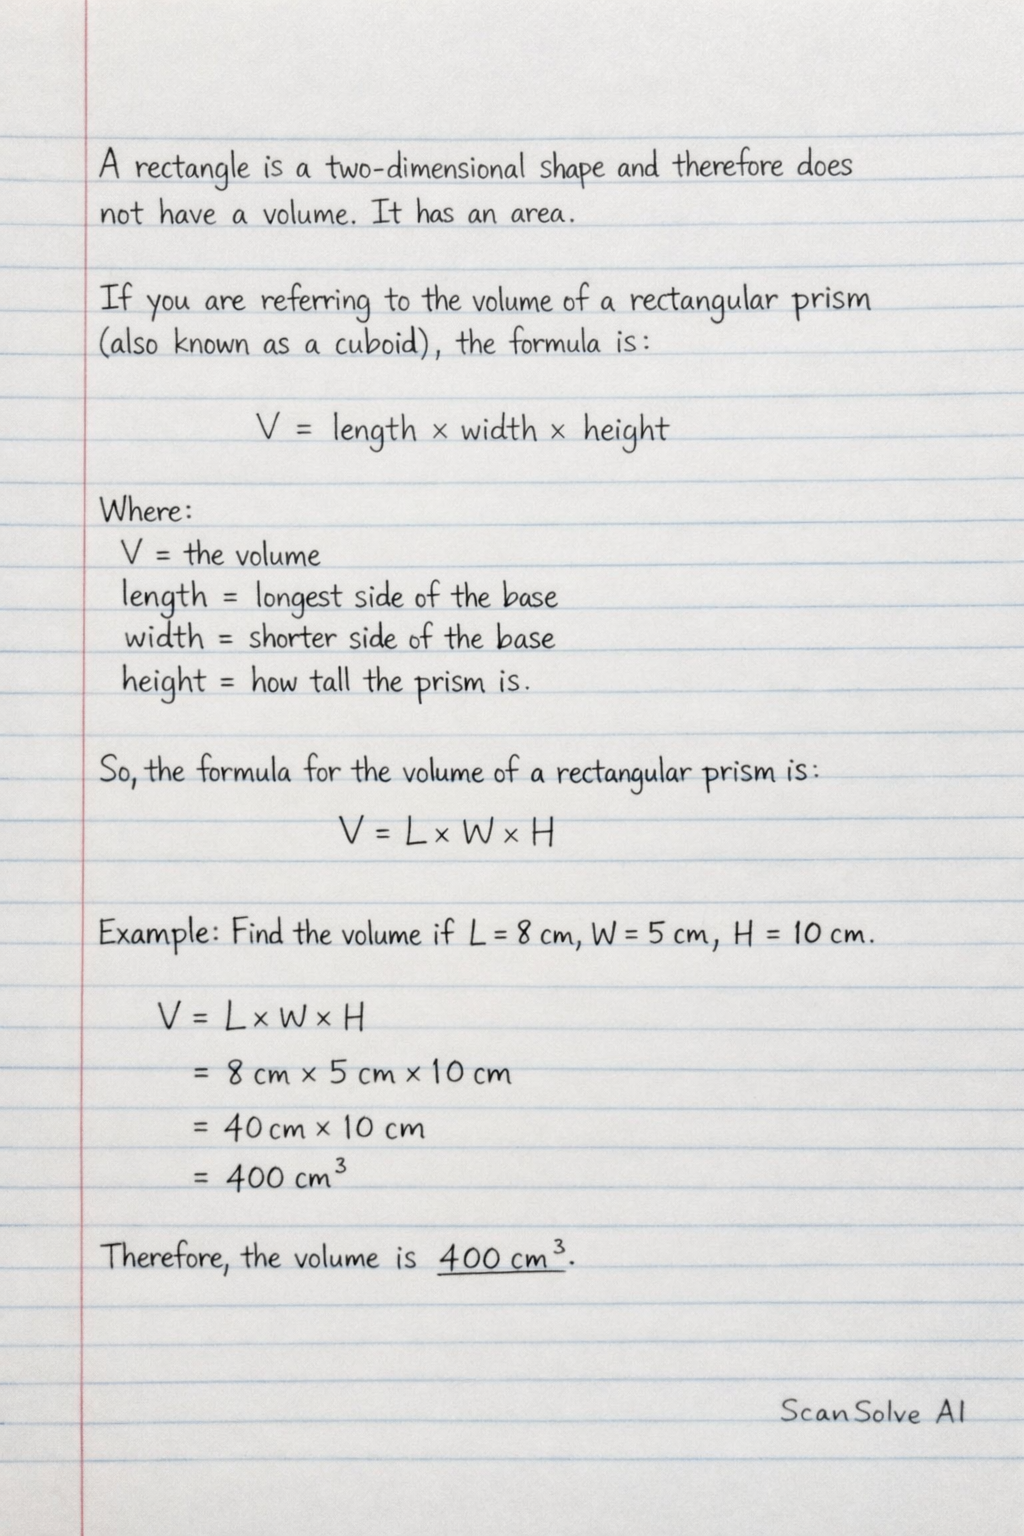 A rectangle is a two-dimensional shape and therefore does
not have a volume. It has an area.
If you are referring to the volume of a rectangular prism
(also known as a cuboid), the formula is:
V = length × width × height
Where:
V = the volume
length = longest side of the base
width = shorter side of the base
height = how tall the prism is.
So, the formula for the volume of a rectangular prism is:
V = L × W × H
Example: Find the volume if L = 8 cm, W = 5 cm, H = 10 cm.
V = L × W × H
= 8 cm × 5 cm × 10 cm
= 40 cm × 10 cm
= 400 cm³
Therefore, the volume is 400 cm³.
ScanSolve AI